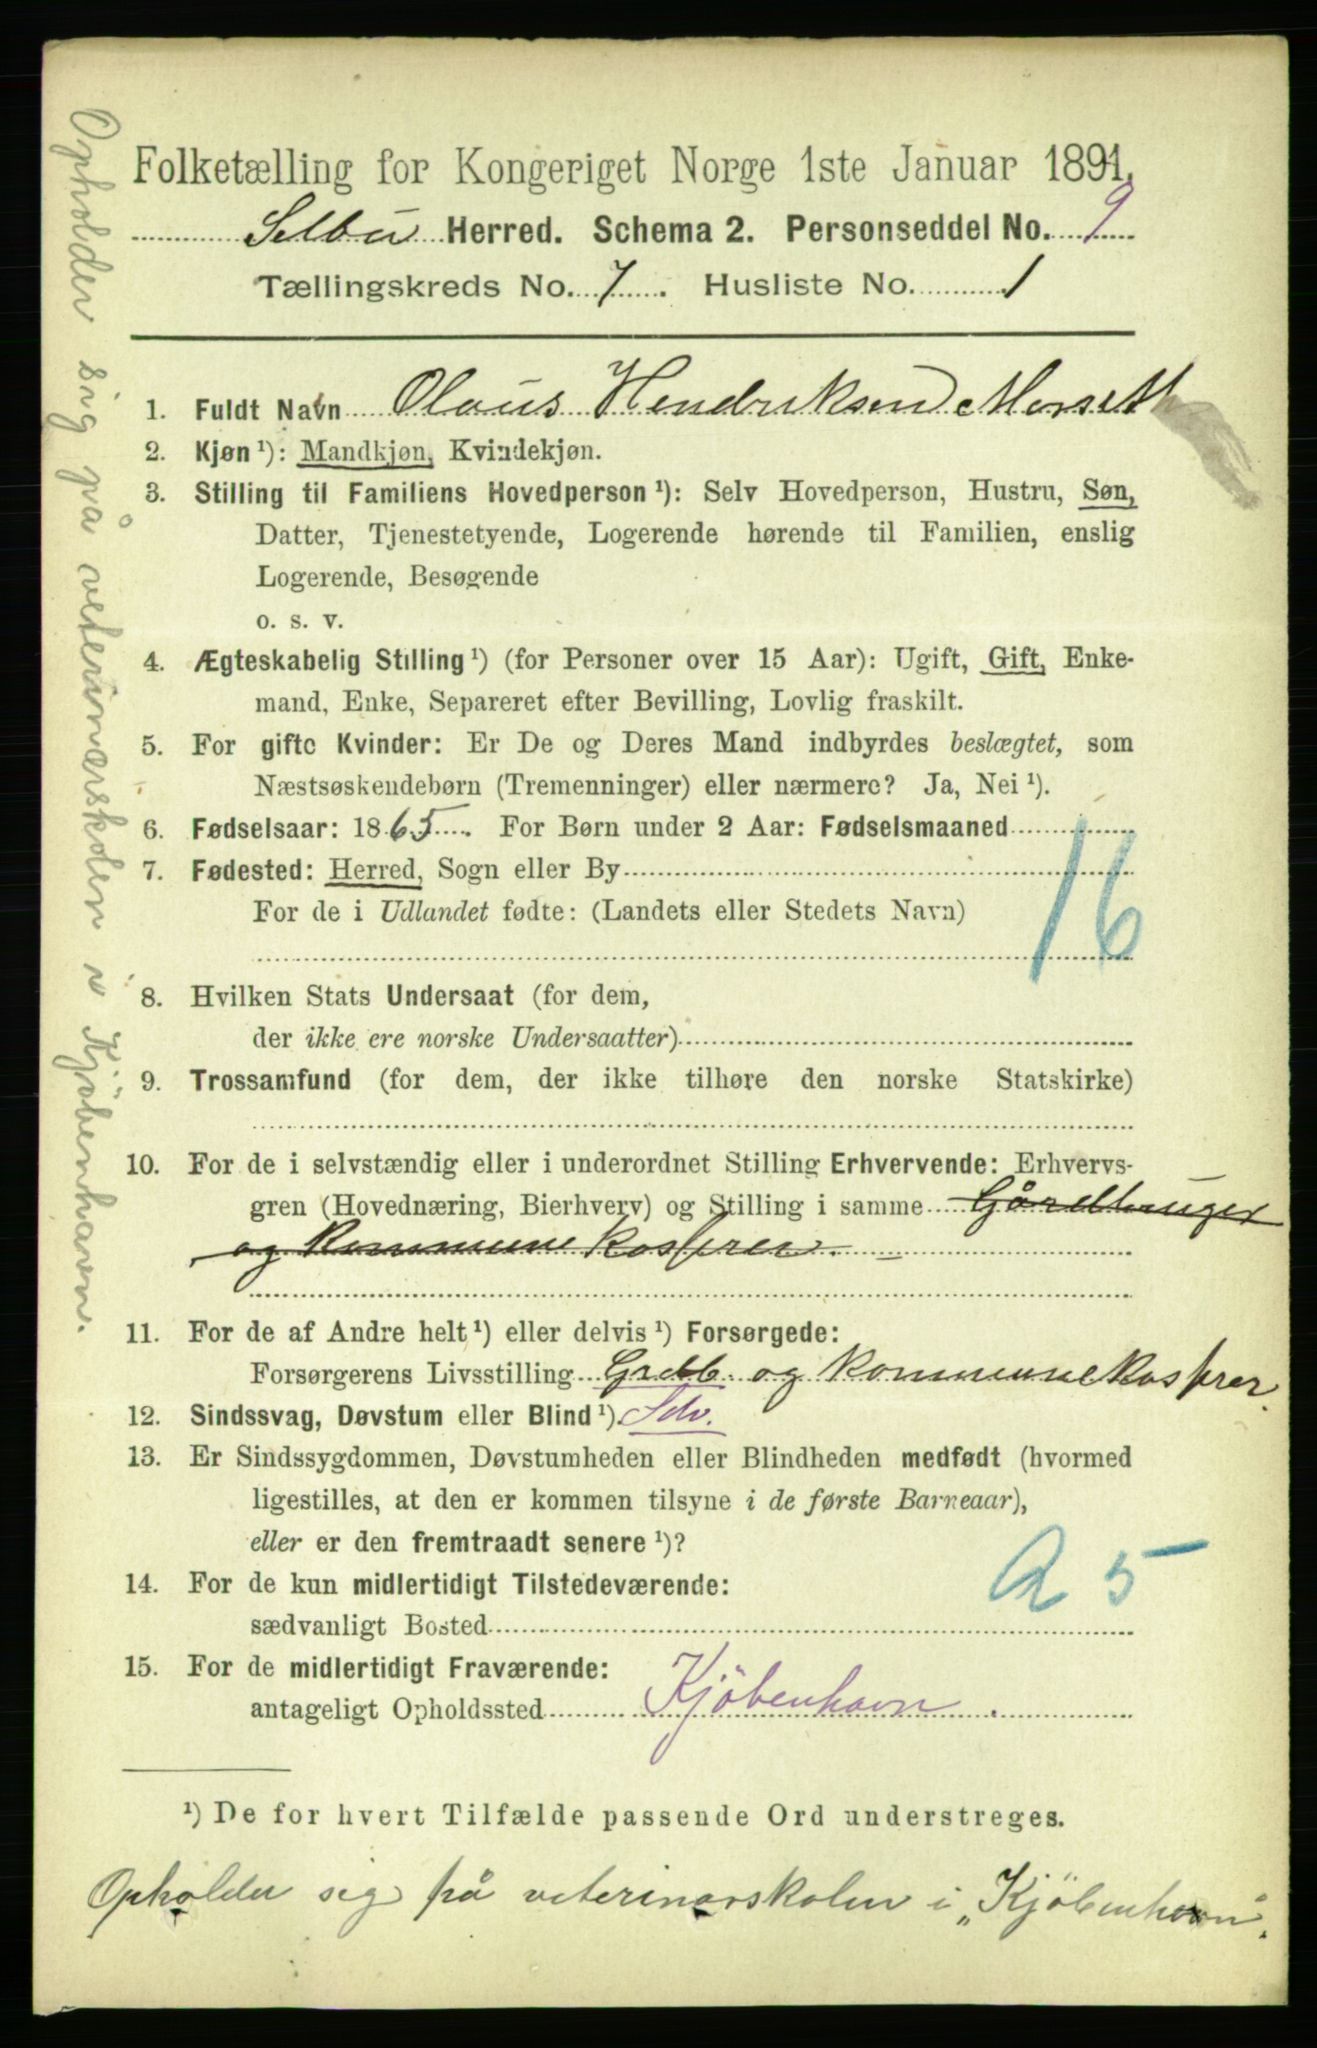 Folketælling for Kongeriget Norge 1ste Januar 1891.
Selbu Herred. Schema 2. Personseddel No. 9
Tællingskreds No. 7. Husliste No. 1
1. Fuldt Navn Olaus Hendriksen Morseth
2. Kjøn ¹): Mandkjøn, Kvindekjøn.
3. Stilling til Familiens Hovedperson ¹): Selv Hovedperson, Hustru, Søn,
Datter, Tjenestetyende, Logerende hørende til Familien, enslig
Logerende, Besøgende
o. s. v.
4. Ægteskabelig Stilling ¹) (for Personer over 15 Aar): Ugift, Gift, Enke-
mand, Enke, Separeret efter Bevilling, Lovlig fraskilt.
5. For gifte Kvinder: Er De og Deres Mand indbyrdes beslægtet, som
Næstsøskendebørn (Tremenninger) eller nærmere? Ja, Nei ¹).
6. Fødselsaar: 1865. For Børn under 2 Aar: Fødselsmaaned
7. Fødested: Herred, Sogn eller By
For de i Udlandet fødte: (Landets eller Stedets Navn)
16
8. Hvilken Stats Undersaat (for dem,
der ikke ere norske Undersaatter)
9. Trossamfund (for dem, der ikke tilhøre den norske Statskirke)
10. For de i selvstændig eller i underordnet Stilling Erhvervende: Erhvervs-
gren (Hovednæring, Bierhverv) og Stilling i samme Gårdbruger
og kommunekasserer.
11. For de af Andre helt ¹) eller delvis ¹) Forsørgede:
Forsørgerens Livsstilling Grdb. og kommunekasserer.
12. Sindssvag, Døvstum eller Blind ¹).
13. Er Sindssygdommen, Døvstumheden eller Blindheden medfødt (hvormed
ligestilles, at den er kommen tilsyne i de første Barneaar),
eller er den fremtraadt senere ¹)?
14. For de kun midlertidigt Tilstedeværende:
sædvanligt Bosted
5
15. For de midlertidigt Fraværende:
antageligt Opholdssted Kjöbenhavn.
¹) De for hvert Tilfælde passende Ord understreges.
Opholder sig på veterinærskolen i „Kjöbenhavn“.
Opholder sig på veterinærskolen i Kjöbenhavn.